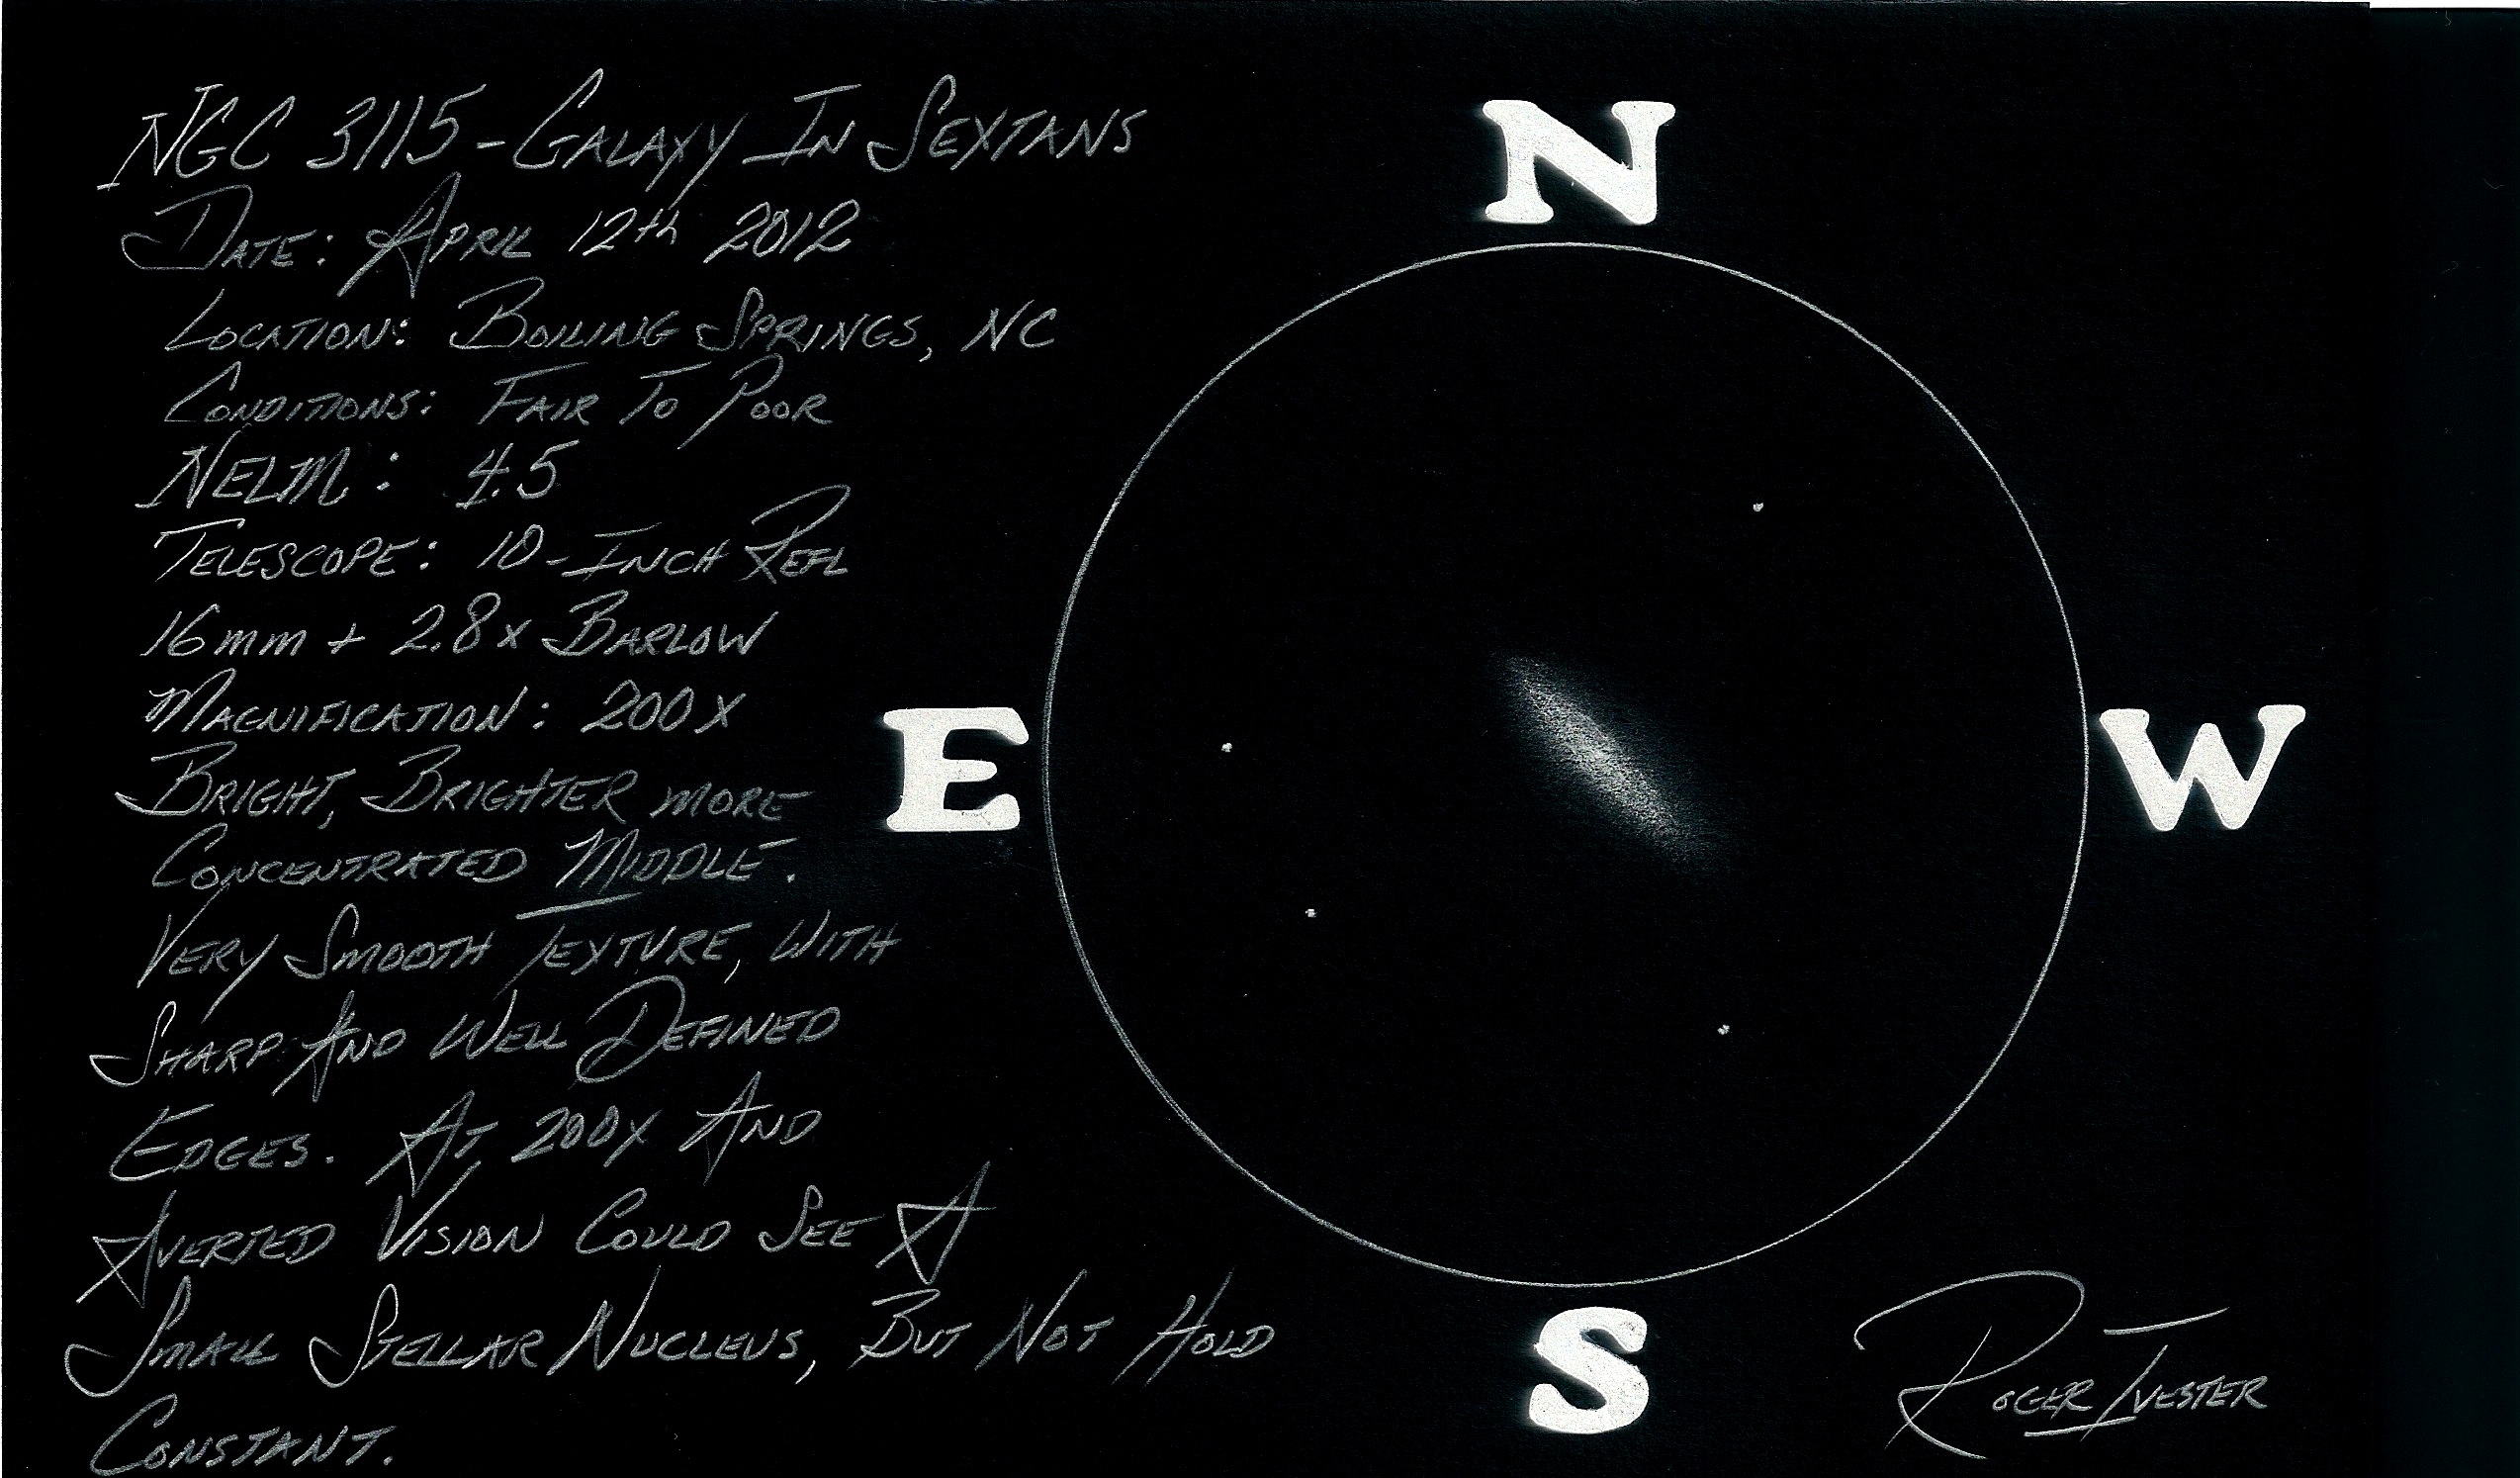 NGC 3115 - Galaxy In Sextans
Date: April 12th 2012
Location: Boiling Springs, NC
Conditions: Fair To Poor
NELM: 4.5
Telescope: 10-Inch Refl
16mm + 2.8x Barlow
Magnification: 200x
Bright, Brighter more
Concentrated Middle.
Very Smooth Texture, With
Sharp And Well Defined
Edges. At 200x And
Averted Vision Could See A
Small Stellar Nucleus, But Not Hold
Constant.
N
E
W
S
Roger Ivester